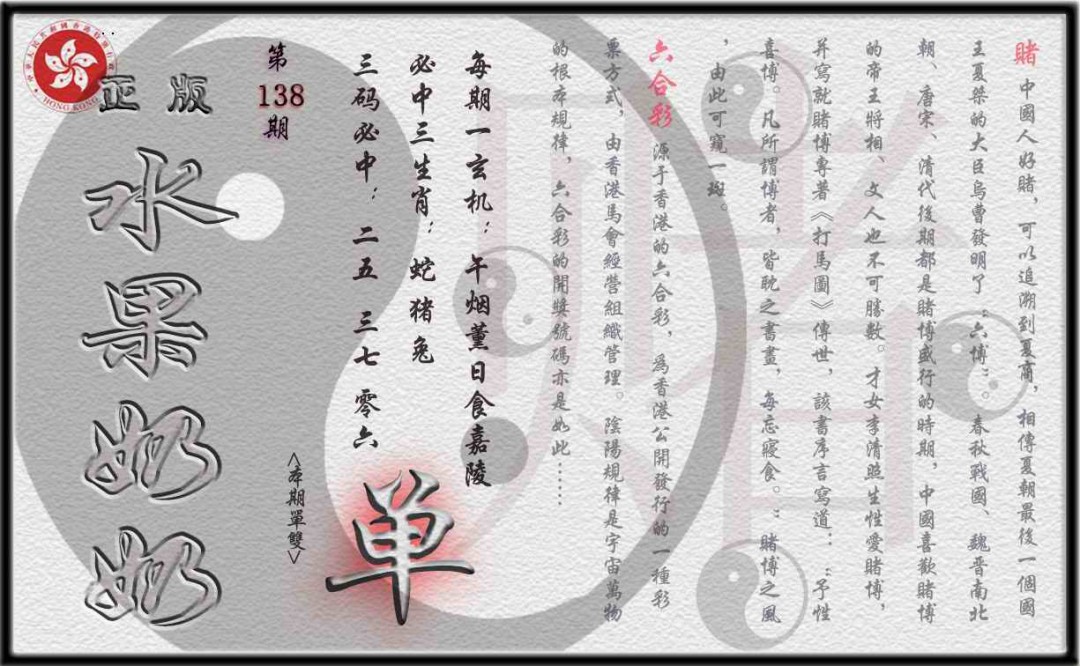 賭 中國人好賭，可以追溯到夏商，相傳夏朝最後一個國
王夏桀的大臣烏曹發明了“六博”。春秋戰國、魏晉南北
朝、唐宋、清代後期都是賭博盛行的時期，中國喜歡賭博
的帝王將相、文人也不可勝數。才女李清照生性愛賭博，
并寫就賭博專著《打馬圖》傳世，該書序言寫道：“予性
喜博。凡所謂博者，皆耽之書畫，每忘寢食。”賭博之風
，由此可窺一斑。
六合彩 源于香港的六合彩，為香港公開發行的一種彩
票方式，由香港馬會經營組織管理。陰陽規律是宇宙萬物
的根本規律，六合彩的開獎號碼亦是如此……
每期一玄机：午烟薰日食嘉陵
必中三生肖：蛇猪兔
三码必中：二五 三七 零六
单
<本期單雙>
第
138
期
正版
水果奶奶
HONG KONG
賭